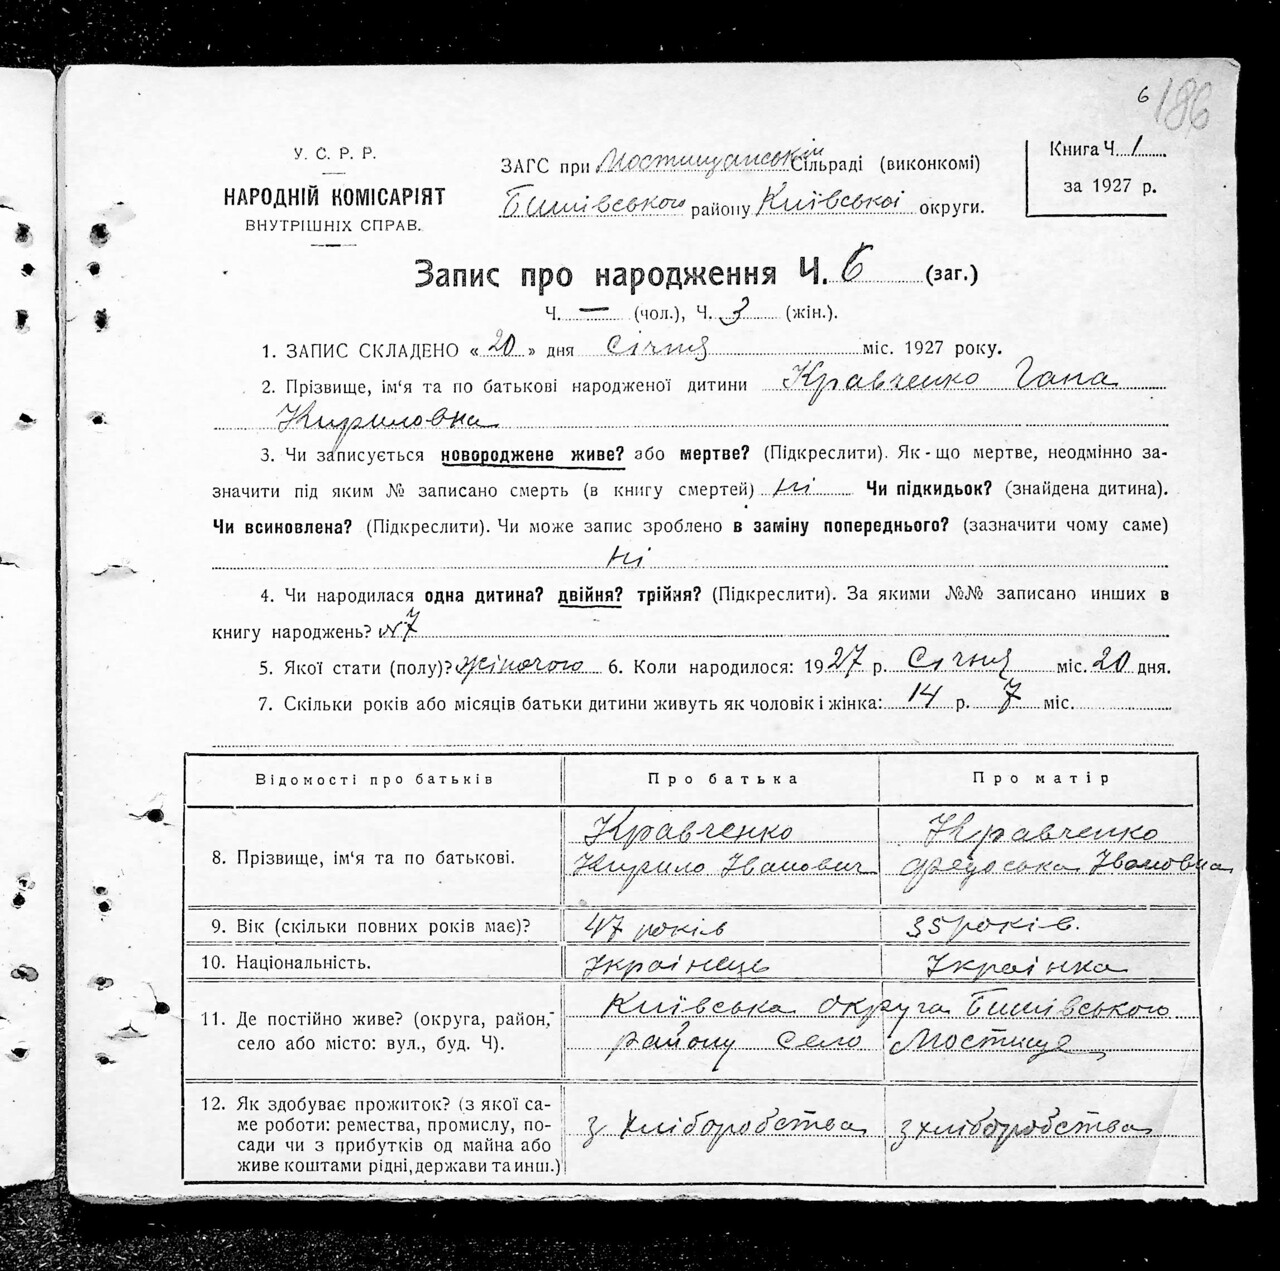 6 186
У. С. Р. Р.
НАРОДНІЙ КОМІСАРІЯТ
ВНУТРІШНІХ СПРАВ.
ЗАГС при Мостищанській Сільраді (виконкомі)
Бишівського району Київської округи.
Книга Ч. 1
за 1927 р.
Запис про народження Ч. 6 (заг.)
Ч. — (чол.), Ч. 3 (жін.).
1. ЗАПИС СКЛАДЕНО « 20 » дня Січня міс. 1927 року.
2. Прізвище, ім‘я та по батькові народженої дитини Кравченко Гапа
Кириловна
3. Чи записується новороджене живе? або мертве? (Підкреслити). Як-що мертве, неодмінно за-
значити під яким № записано смерть (в книгу смертей) Ні Чи підкидьок? (знайдена дитина).
Чи всиновлена? (Підкреслити). Чи може запис зроблено в заміну попереднього? (зазначити чому саме)
Ні
4. Чи народилася одна дитина? двійня? трійня? (Підкреслити). За якими №№ записано инших в
книгу народжень? №7
5. Якої стати (полу)? жіночого 6. Коли народилося: 1927 р. Січня міс. 20 дня.
7. Скільки років або місяців батьки дитини живуть як чоловік і жінка: 14 р. 7 міс.
Відомості про батьків Про батька Про матір
8. Прізвище, ім‘я та по батькові.
Кравченко
Кирило Іванович
Кравченко
Федоська Івановна
9. Вік (скільки повних років має)? 47 років 35 років.
10. Національність. Українець Українка
11. Де постійно живе? (округа, район,
село або місто: вул., буд. Ч).
Київська округа Бишівського
району село Мостище
12. Як здобуває прожиток? (з якої са-
ме роботи: ремества, промислу, по-
сади чи з прибутків од майна або
живе коштами рідні, держави та инш.)
з хліборобства з хліборобства